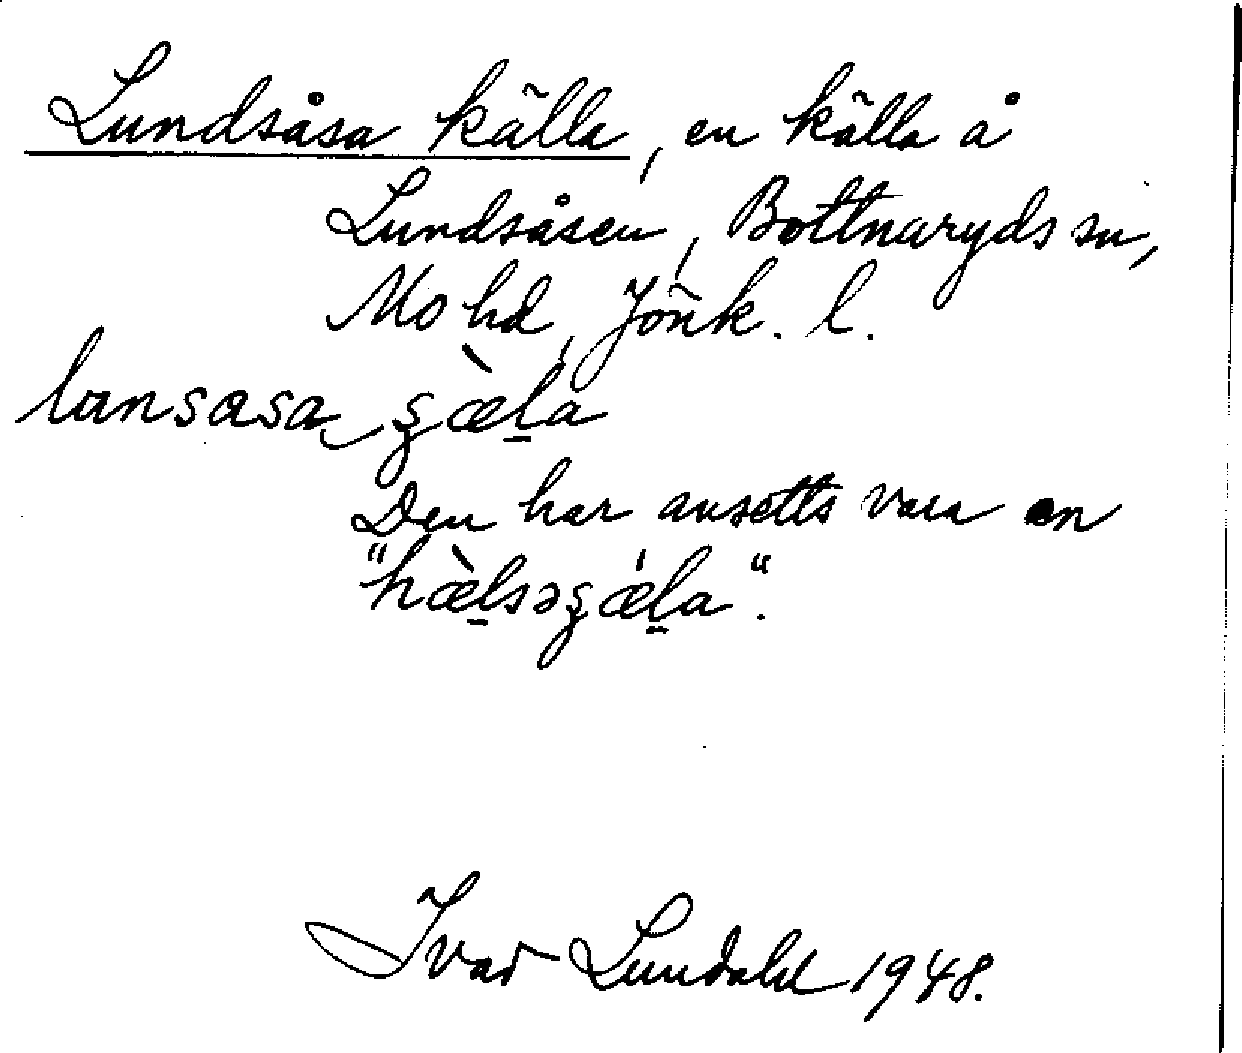 Lundsåsa källa, en källa å
Lundsåsen, Bottnaryds sn,
Mo hd, Jönk. l.
lunsasa ʂæ̀l̠a
Den har ansetts vara en
"hæ̀l̠səʂǽl̠a".
Ivar Lundahl 1948.